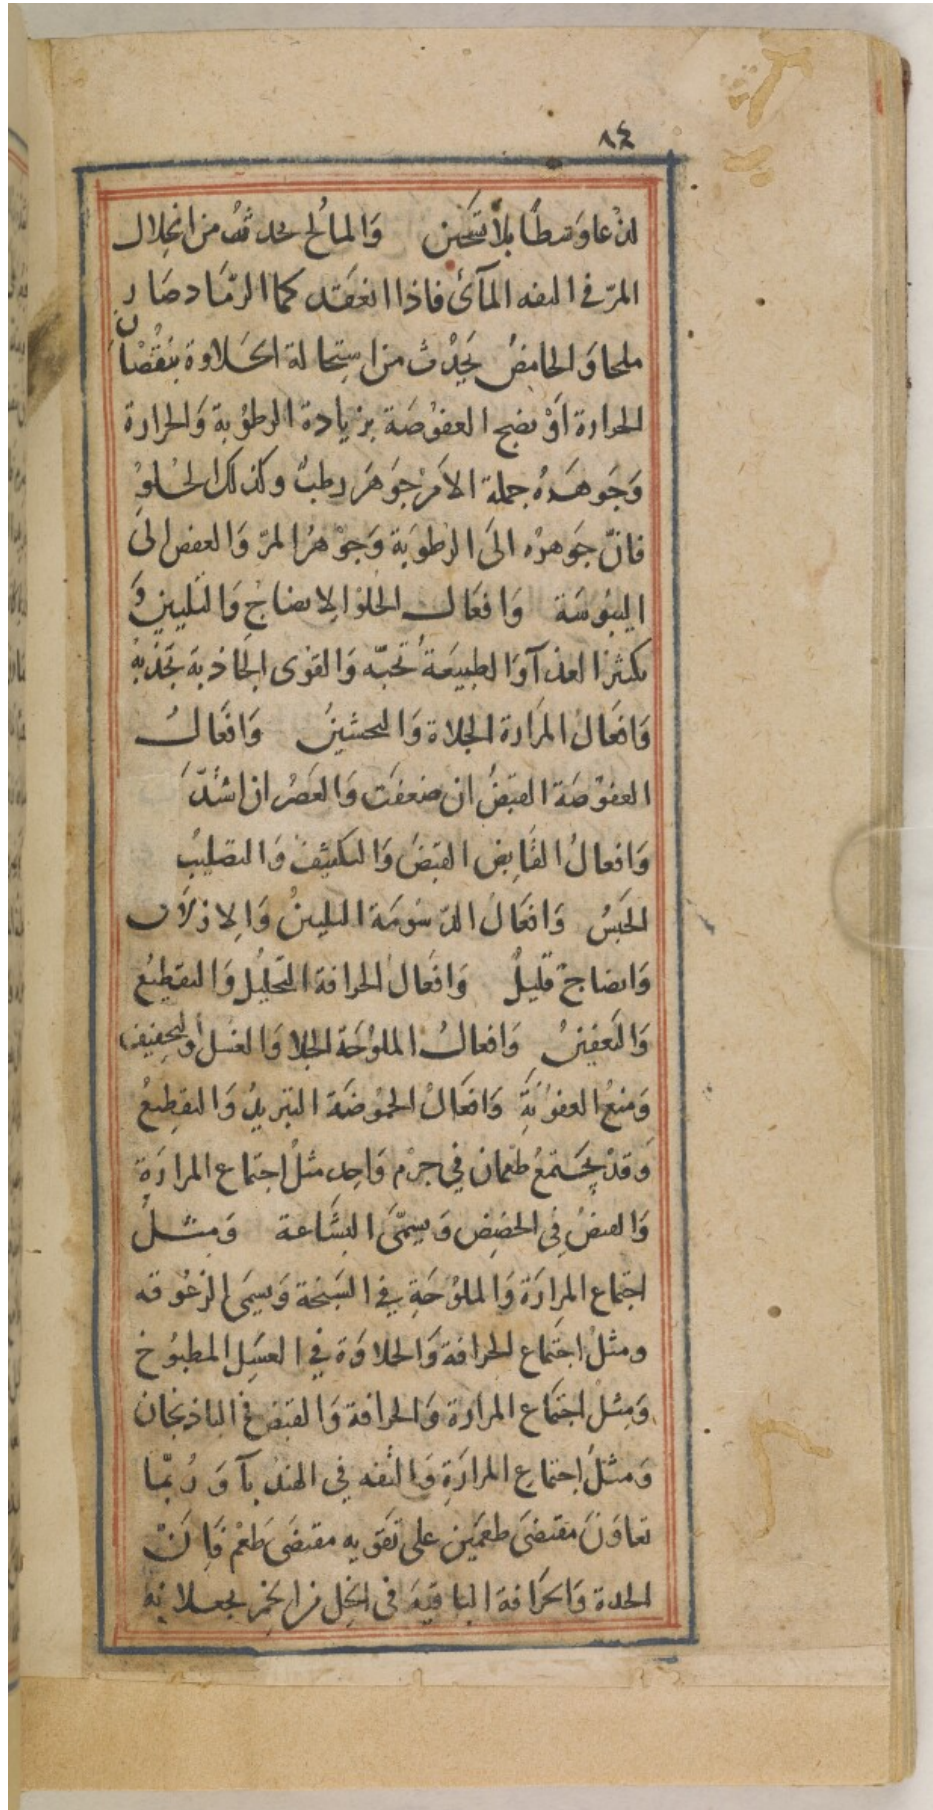 ٨٤
لذعا وسطا بلا تسخين والمالح يحدثه من انحلال
المر في التفه المآئ فاذا انعقد كما الرماد صار
ملحا وَالحامضُ يَحْدث من استحالة الحَلاوة بنقْصَان
الحرارة اَوْ نضج العفوْصَة بزيادة الرطوُبة وَالحرارة
وَجَوهَرهُ جملة الاَمرْ جَوهَر رطبٌ وكذلك الحُلوُ
فانّ جَوهرْه الىَ الرطوَبَة وَجوْهرُ المرّ وَالعفص الىَ
اليبُوسَة وَافعَال الحُلوْ الاِنضاجُ وَالتليينُ وَ
يكثر الغذآوَ الطبيعَةُ تحبّه وَالقوٰى الجاذبة تجَذبهُ
وَافعَالُ المرَارة الجلاة وَالتخشينُ وَافعَالُ
العفوْصَة القبضُ ان ضعفَت وَالعَصْر ان اشتدّتَ
وَافعالُ القَابِض القبَضُ وَالتكثيفُ وَالتصليبُ
الحَبْسُ وَافعَالُ الدّسُومَة التليينُ وَالاِزلاَق
وَانضاجٌ قليلٌ وَافعَالُ الحرافة التحليْلُ وَالتقطيعُ
وَالتَعفينُ وَافعالُ الملوُحَة الجلا وَالغسل وَالتجفيف
وَمنعُ العفوُنَةِ وَافعَالُ الحموُضَة التبريدُ وَالتقطِيعُ
وَقدْ يجَتمعُ طعمان في جرْم وَاحِد مثلُ اجتماع المرارَةِ
وَالقبضُ فِى الحضِضِ وَيسمّىَ البشَاعة وَمثلُ
اجتماع المرارَة وَالملوُحَةِ في السَبخة وَيسَمىَ الزعُوقه
ومثلُ اجتماع الحرافة وَالحلاوَة فيْ العسَل المطبوُخ
وَمثلُ اجتمَاع المرارة وَالحرافة وَالقبض فى الباذنجان
وَمثلُ اجتماعِ المرارَةِ وَالتفه في الهندبآ وَرُبّما
تعاوَنَ مقتضىَ طعمَين على تقَويه مقتضىَ طَعْم فاِنّ
الحدة وَالحَرافة الباقيَة فى الخِل من الخمر يجعلانه